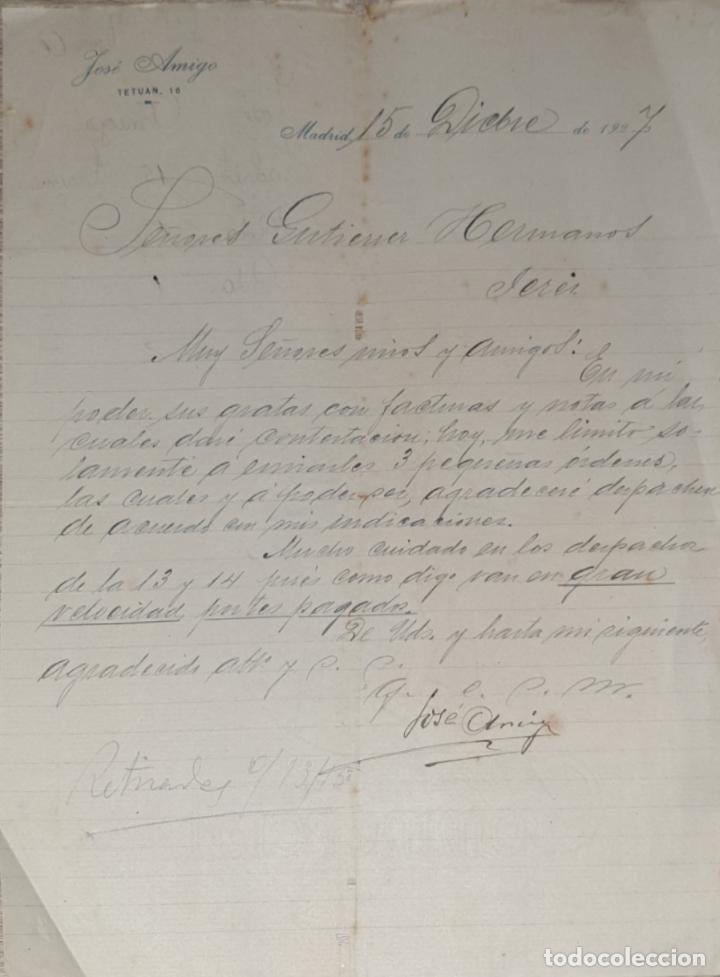 José Amigo
TETUAN, 16
Madrid, 15 de Dicbre de 1927
Señores Gutierrez Hermanos
Jerez
Muy Señores mios y amigos:
En mi
poder sus gratas con facturas y notas á las
cuales daré contestacion; hoy, me limito so-
lamente á enviarles 3 pequeñas órdenes,
las cuales y á poder ser, agradeceré despachen
de acuerdo con mis indicaciones.
Mucho cuidado en los despachos
de la 13 y 14 pués como digo van en gran
velocidad, portes pagados.
De Uds. y hasta mi siguiente,
agradecido atto y s. s.
q. e. s. m.
José Amigo
todocoleccion